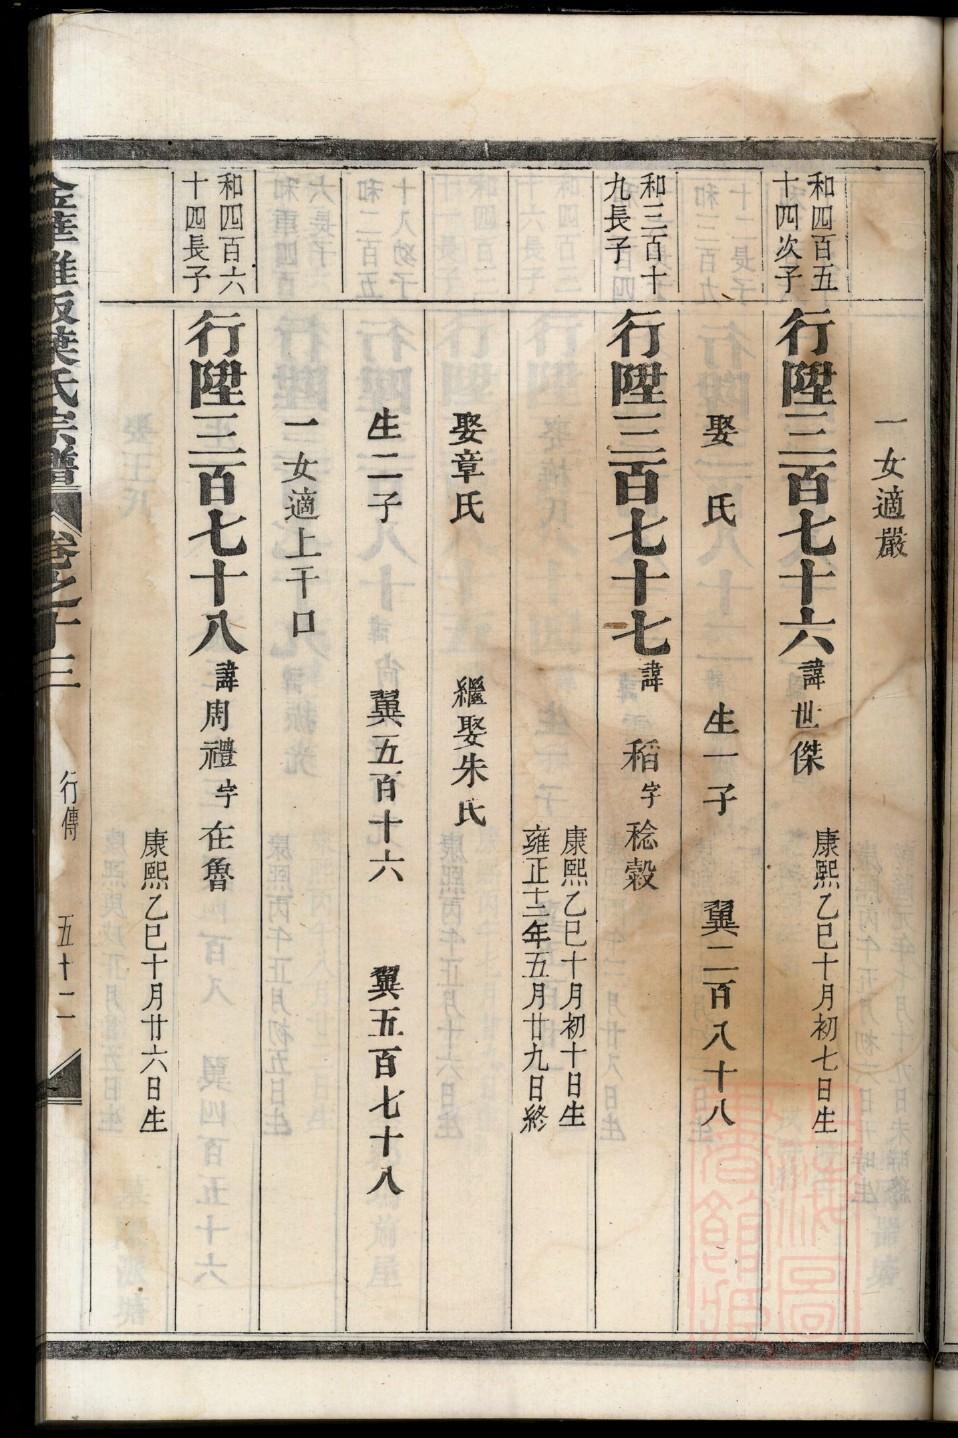 一女適嚴
和四百五
十四次子
行陞三百七十六 諱世傑
康熙乙巳十月初七日生
娶 氏 生一子 翼二百八十八
和三百十
九長子
行陞三百七十七 諱稻 字稔穀
康熙乙巳十月初十日生
雍正十三年五月廿九日終
娶章氏 繼娶朱氏
生二子 翼五百十六 翼五百七十八
一女適上干口
和四百六
十四長子
行陞三百七十八 諱周禮 字在魯
康熙乙巳十月廿六日生
葉氏宗譜 卷之十三 行傳 五十二